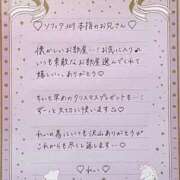 ♡ソフィア301 本指のお兄さん♡
懐かしいお部屋…！お気に入り♪
いつも素敵なお部屋選んでくれて
嬉しい。ありがとう♡
ちょっと早めのクリスマスプレゼントも…！
ずーっと大切に使います♡
れいの為にいつも沢山ありがとう
これからも尽くし隊します…♡
♡れい♡